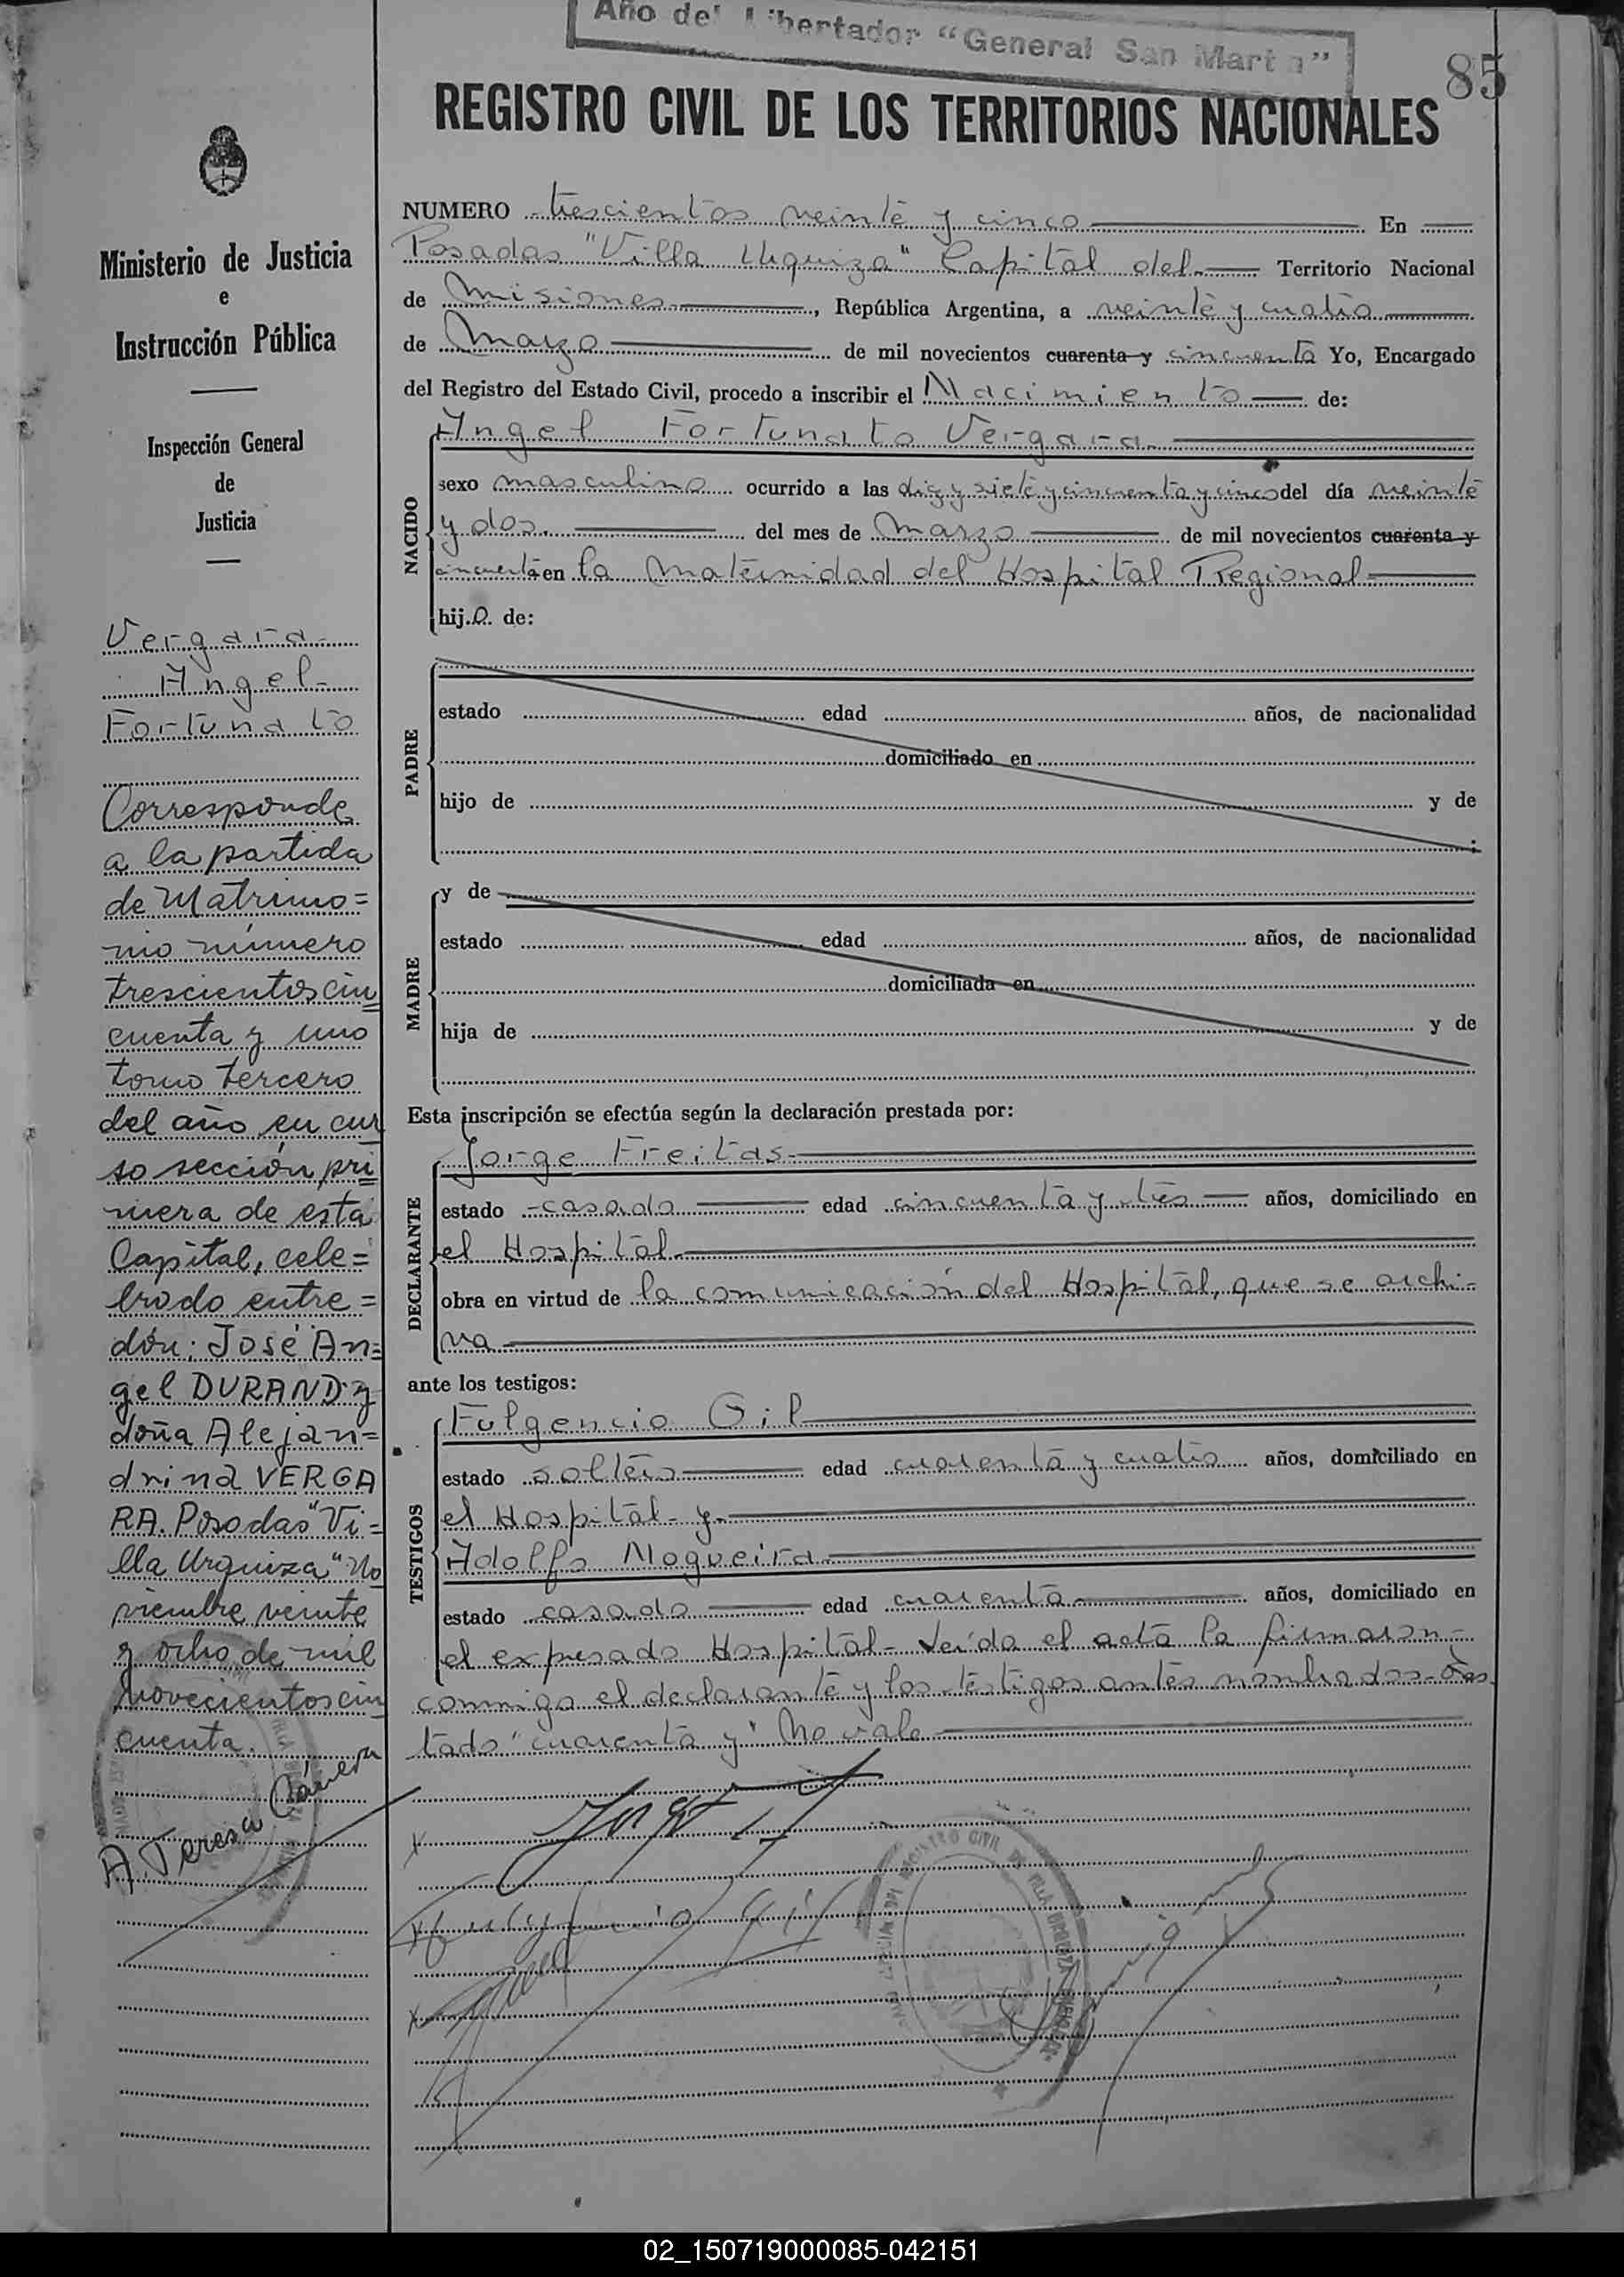 Año del Libertador "General San Martin"
85
REGISTRO CIVIL DE LOS TERRITORIOS NACIONALES
Ministerio de Justicia
e
Instrucción Pública
Inspección General
de
Justicia
Vergara
Angel
Fortunato
Corresponde
a la partida
de Matrimo=
nio número
trescientos cin
cuenta y uno
tomo tercero
del año en cur
so sección pri
mera de esta
Capital, cele=
brado entre=
dón: José An=
gel DURAND y
doña Alejan=
drina VERGA
RA. Posadas "Vi=
lla Urquiza" No
viembre veinte
y ocho de mil
novecientos cin
cuenta.
A. Teresa
NUMERO trescientos veinte y cinco En
Posadas "Villa Urquiza" Capital del Territorio Nacional
de Misiones, República Argentina, a veinte y cuatro
de Marzo de mil novecientos cuarenta y cincuenta Yo, Encargado
del Registro del Estado Civil, procedo a inscribir el Nacimiento de:
NACIDO
Angel Fortunato Vergara
sexo masculino ocurrido a las diez y siete y cincuenta y cinco del día veinte
y dos. del mes de Marzo de mil novecientos cuarenta y
cincuenta en la Maternidad del Hospital Regional
hijo de:
PADRE
estado edad años, de nacionalidad
domiciliado en
hijo de y de
;
MADRE
y de
estado edad años, de nacionalidad
domiciliada en
hija de y de
Esta inscripción se efectúa según la declaración prestada por:
DECLARANTE
Jorge Freitas
estado casado edad cincuenta y tres años, domiciliado en
el Hospital
obra en virtud de la comunicación del Hospital, que se archi-
va
ante los testigos:
TESTIGOS
Fulgencio Gil
estado soltero edad cuarenta y cuatro años, domiciliado en
el Hospital y
Adolfo Nogueira
estado casado edad cuarenta años, domiciliado en
el expresado Hospital - Leída el acta la firmaron
conmigo el declarante y los testigos antes nombrados - Tes
tado "cuarenta y" No vale
Fulgencio Gil
02_150719000085-042151